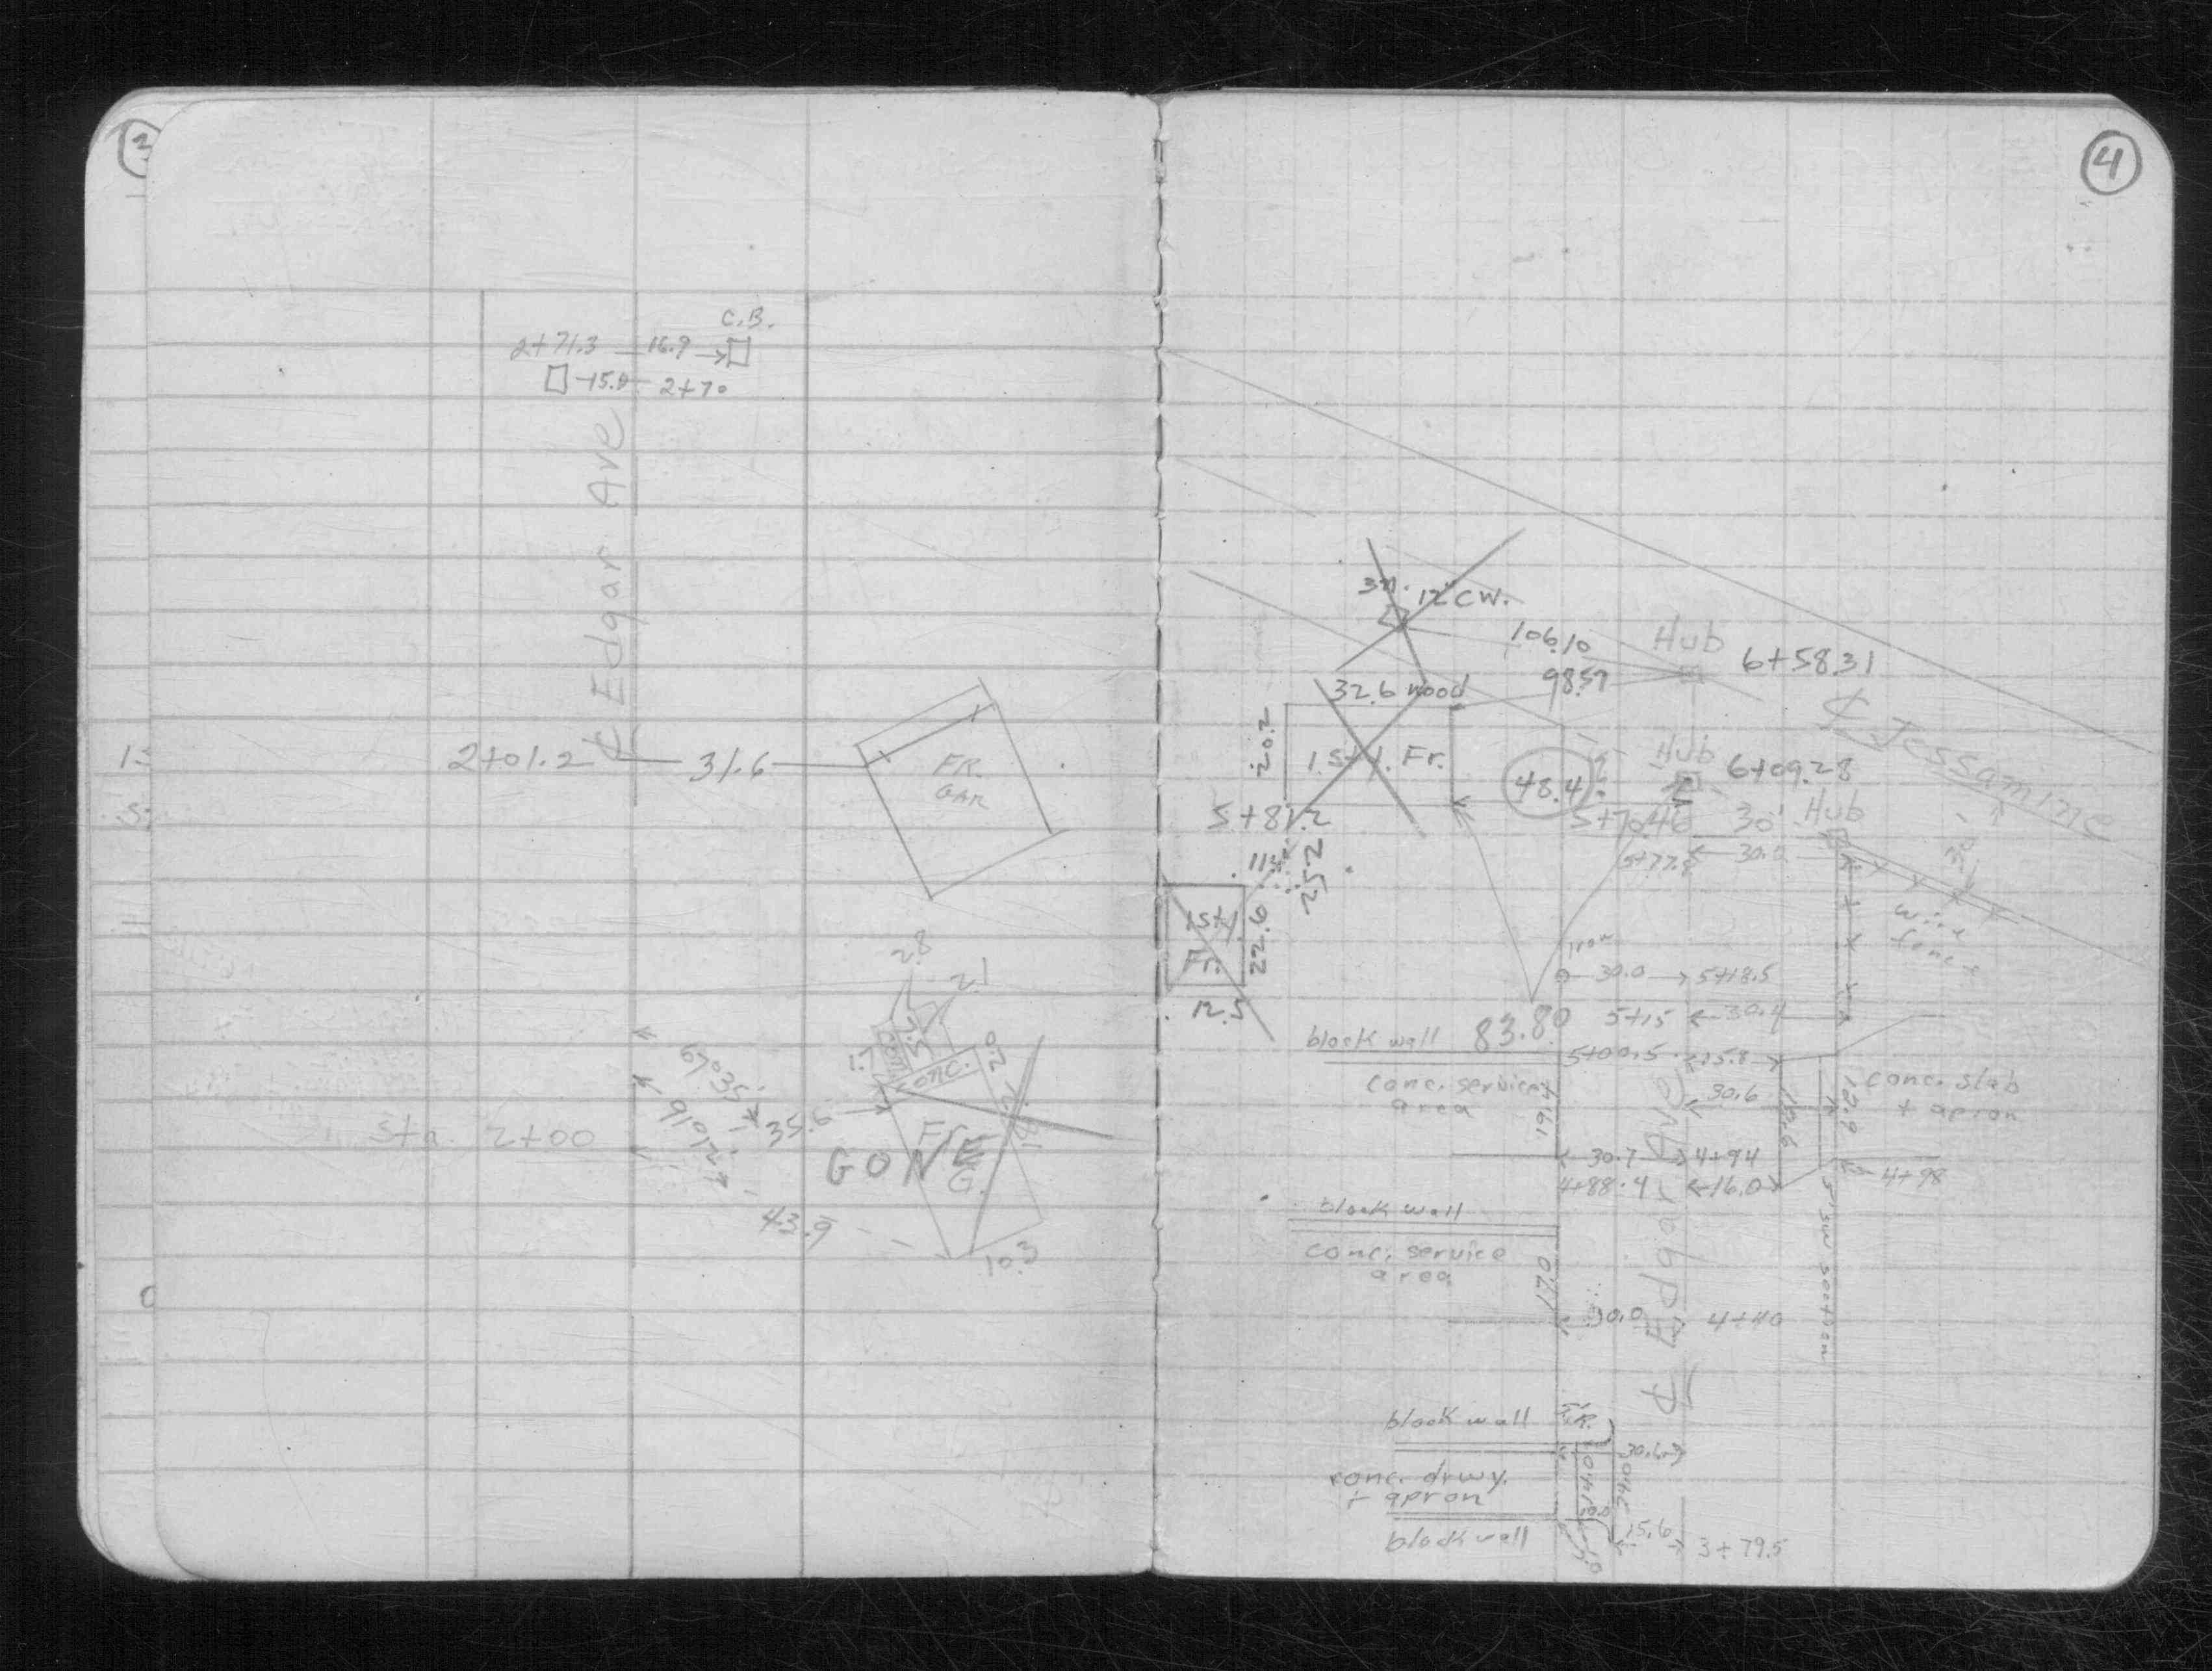 3
C.B.
2+71.3 16.9
15.0 2+70
℄ Edgar Ave
2+01.2 31.6
FR.
GAR
2.8
2.1
1.7
conc.
2.0
67°35'
91°012'
35.6
Sta. 2+00
Fr.
G.
GONE
43.9
10.3
4
12" CW.
106.10
Hub
6+58.31
98.57
32.6 wood
20.2
1 sty. Fr.
48.4
Hub
6+09.28
℄ Jessamine
5+81.2
5+70.46 30' Hub
30'
5+77.8 30.0
11.5
25.2
1 sty
Fr.
22.6
12.5
wire
fence
iron
30.0 5+18.5
5+15 30.4
block wall 83.80
5+00.5 15.8
conc. service
area
19.4
30.6
18.6
12.9
conc. slab
+ apron
30.7 4+94
4+88.4 16.0
4+98
block wall
conc. service
area
17.0
℄ Edgar Ave
5' sw section
30.0 4+40
block wall
30.6
conc. drwy.
+ apron
14.0
24.0
block wall
15.6 3+79.5